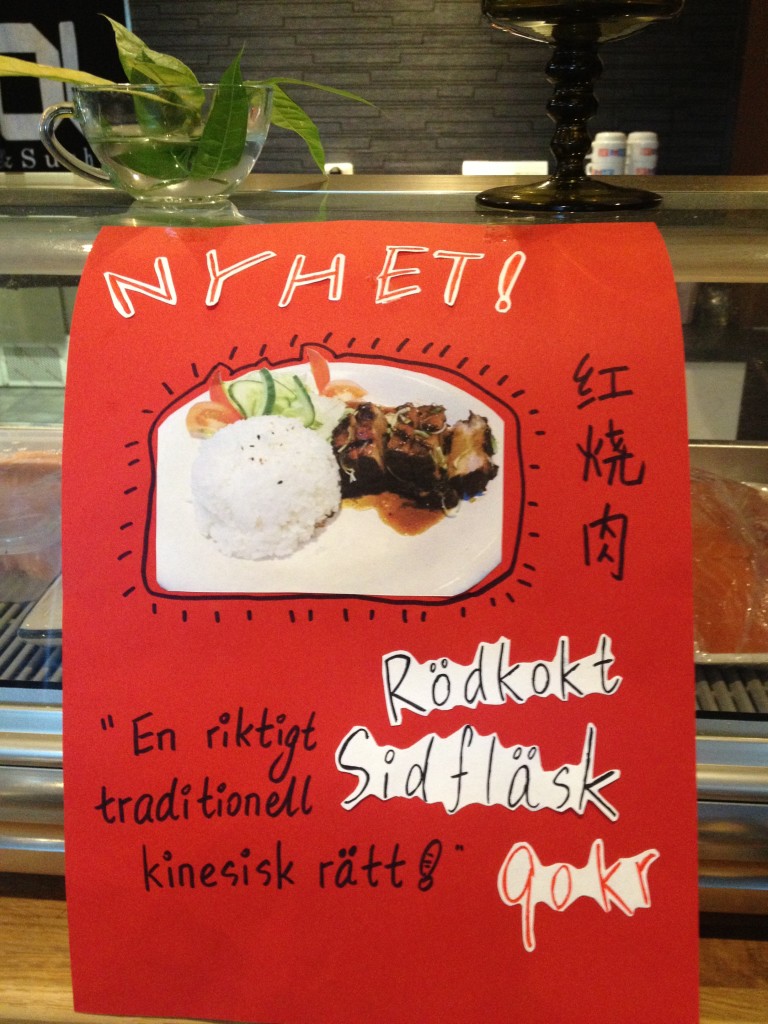 & Sush
NYHET!
红烧肉
Rödkokt
Sidfläsk
"En riktigt
traditionell
kinesisk rätt!"
90kr